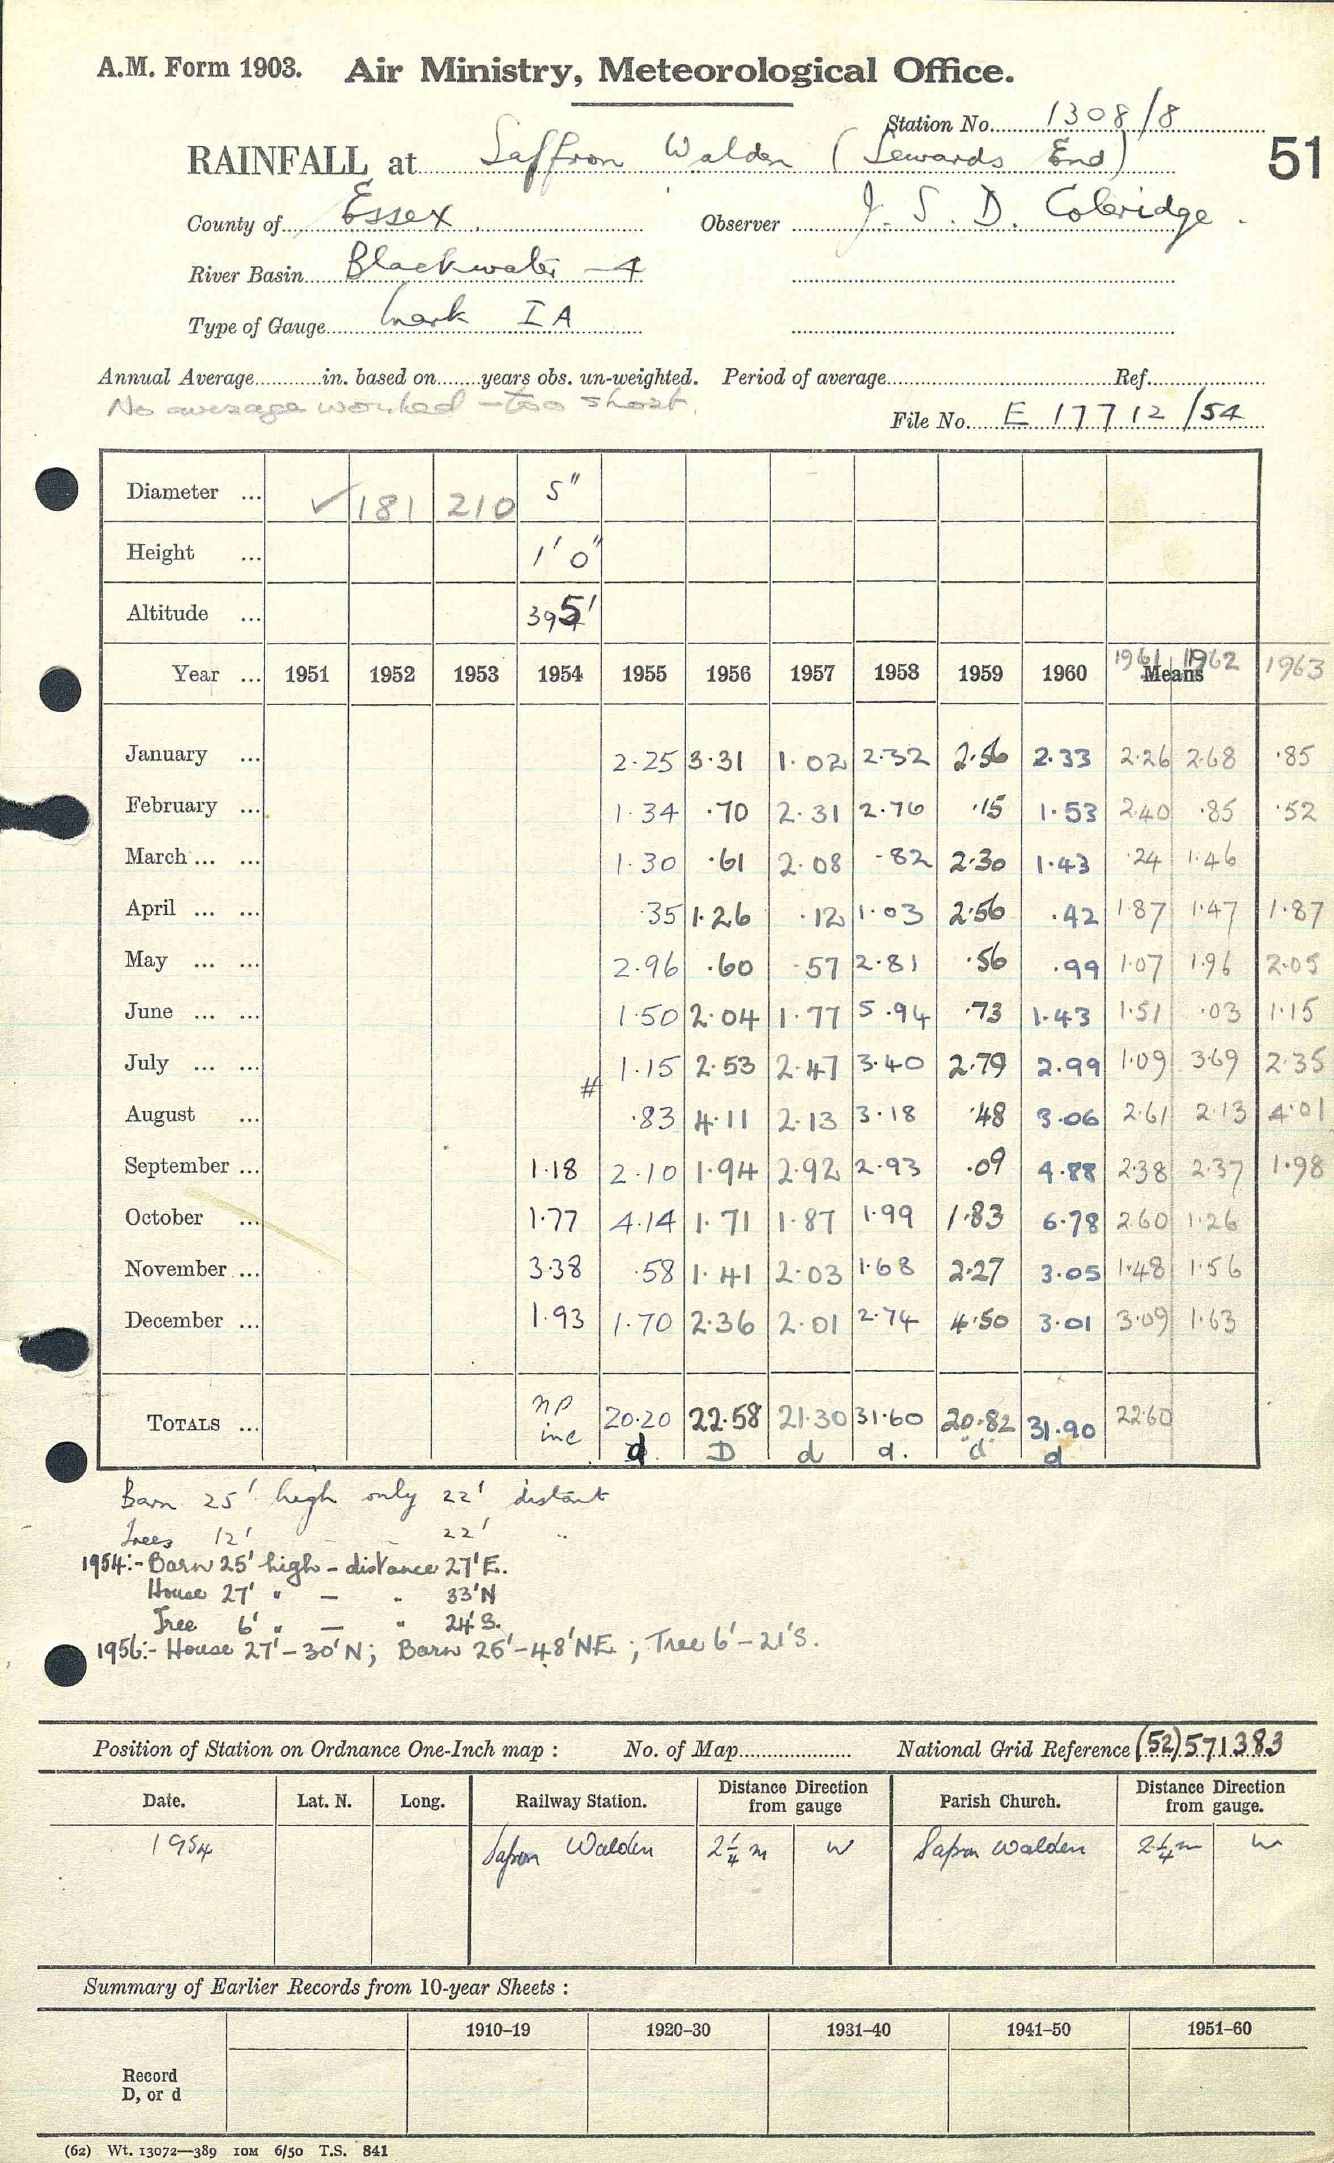 A.M. Form 1903. Air Ministry, Meteorological Office.
Station No. 1308/8
RAINFALL at Saffron Walden (Sewards End) 51
County of Essex Observer J. S. D. Coleridge.
River Basin Blackwater - 4
Type of Gauge Mark IA
Annual Average in. based on years obs. un-weighted. Period of average Ref.
No average worked - too short.
File No. E 17712/54
Diameter ... ✓ 181 210 5"
Height ... 1' 0"
Altitude ... 395'
Year ... 1951 1952 1953 1954 1955 1956 1957 1958 1959 1960 Means 1961 1962 1963
January ... 2.25 3.31 1.02 2.32 2.56 2.33 2.26 2.68 .85
February ... 1.34 .70 2.31 2.76 .15 1.53 2.40 .85 .52
March ... ... 1.30 .61 2.08 .82 2.30 1.43 .24 1.46
April ... ... .35 1.26 .12 1.03 2.56 .42 1.87 1.47 1.87
May ... ... 2.96 .60 .57 2.81 .56 .99 1.07 1.96 2.05
June ... ... 1.50 2.04 1.77 5.94 .73 1.43 1.51 .03 1.15
July ... ... 1.15 2.53 2.47 3.40 2.79 2.99 1.09 3.69 2.35
August ... # .83 4.11 2.13 3.18 .48 3.06 2.61 2.13 4.01
September ... 1.18 2.10 1.94 2.92 2.93 .09 4.88 2.38 2.37 1.98
October ... 1.77 4.14 1.71 1.87 1.99 1.83 6.78 2.60 1.26
November ... 3.38 .58 1.41 2.03 1.68 2.27 3.05 1.48 1.56
December ... 1.93 1.70 2.36 2.01 2.74 4.50 3.01 3.09 1.63
TOTALS ... np inc 20.20 22.58 21.30 31.60 20.82 31.90 22.60
d D d d. d d
Barn 25' high only 22' distant
Trees 12' - - 22' "
1954:- Barn 25' high - distance 27' E.
House 27' " - " 33' N
Tree 6' " - " 24' S.
1956:- House 27' - 30' N; Barn 25' - 48' NE; Tree 6' - 21' S.
Position of Station on Ordnance One-Inch map : No. of Map National Grid Reference (52) 571383
Date. Lat. N. Long. Railway Station. Distance Direction from gauge Parish Church. Distance Direction from gauge.
1954 Saffron Walden 2¼ m W Saffron Walden 2¼ m W
Summary of Earlier Records from 10-year Sheets :
1910–19 1920–30 1931–40 1941–50 1951–60
Record
D, or d
(62) Wt. 13072—389 10M 6/50 T.S. 841